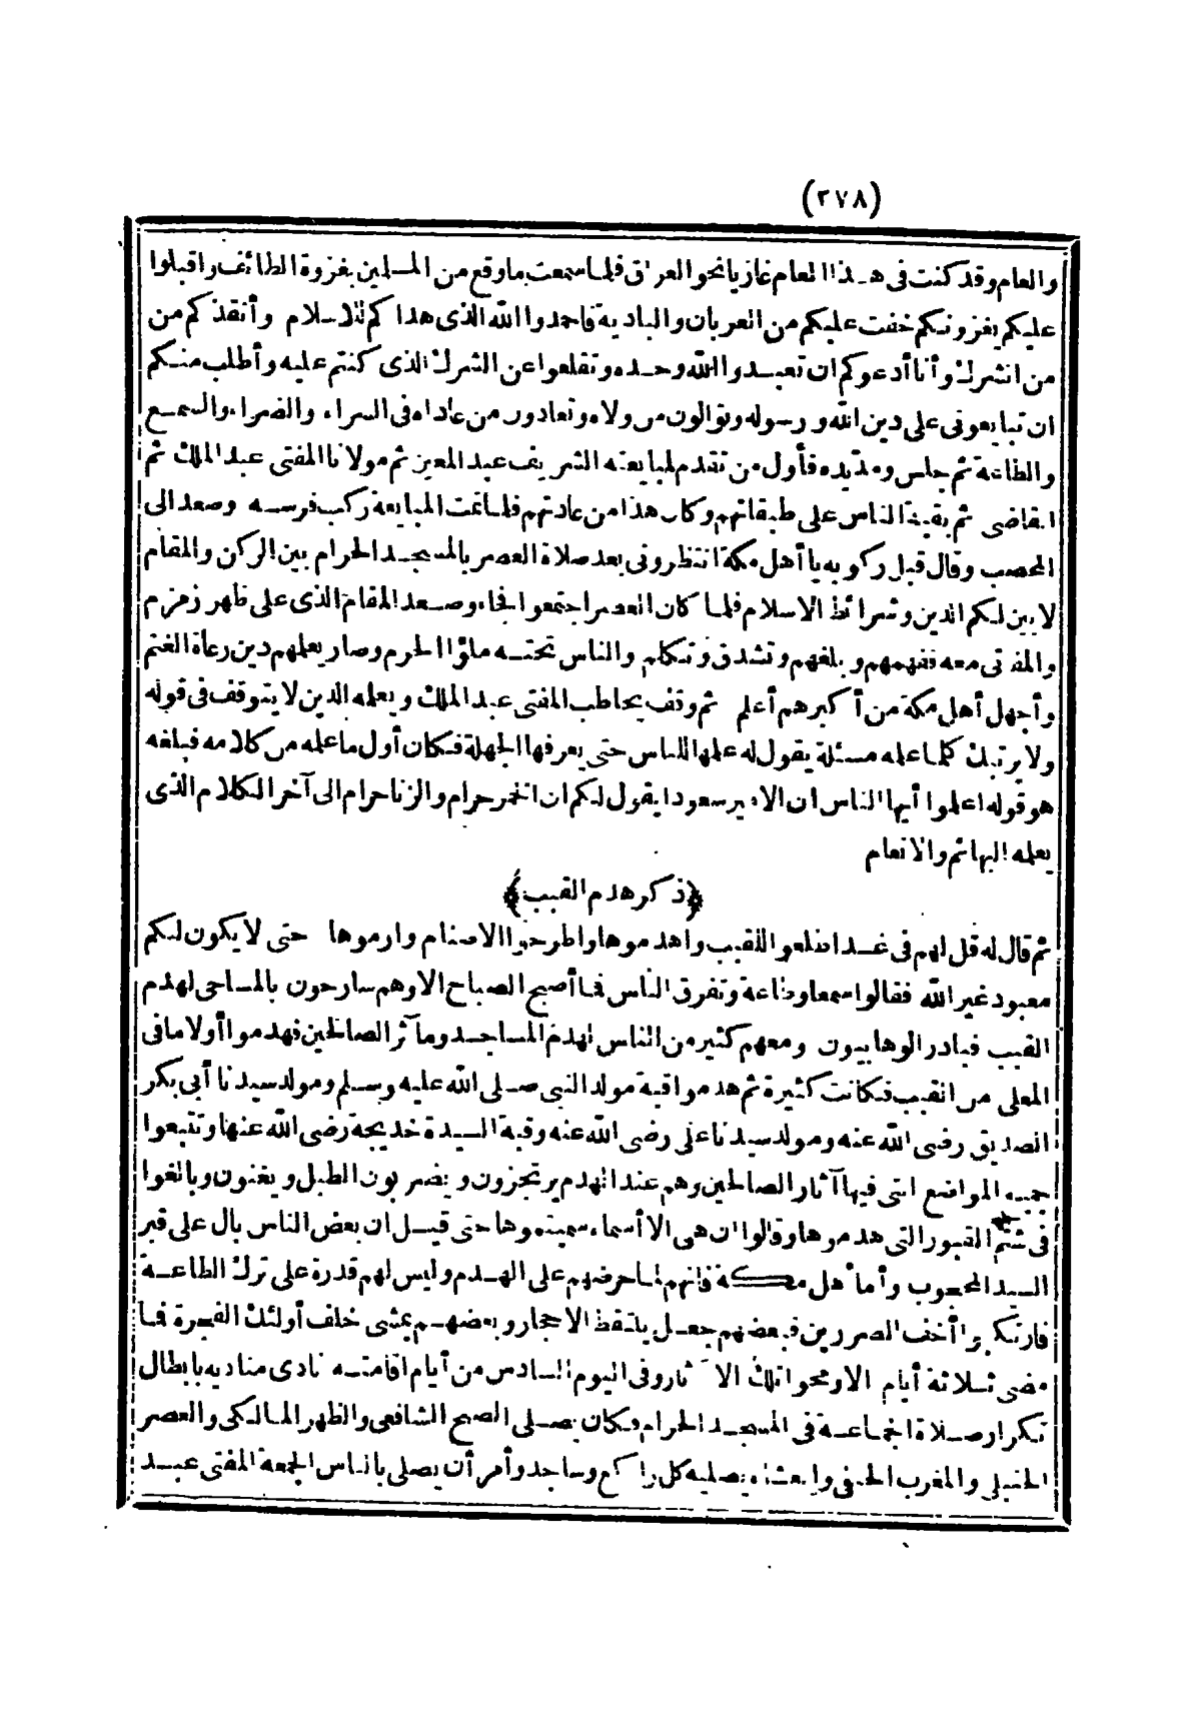 (٢٧٨)
والعام وقد كنت في هذا العام غاز يا نحو العراق فلما سمعت ما وقع من المسلمين بغزوة الطائف واقبلوا
عليكم يغزونكم خفت عليكم من العربان والبادية فاحمدوا الله الذى هداكم للاسلام وأنقذكم من
من الشرك وأنا أدعوكم ان تعبدوا الله وحده وتقلعوا عن الشرك الذى كنتم عليه وأطلب منكم
ان تبايعونى على دين الله ورسوله وتوالون من ولاه وتعادون من عاداه فى السراء والضراء والسمع
والطاعة ثم جلس ومد يده فأول من تقدم لمبايعته الشريف عبد المعين ثم مولانا المفتى عبد الملك ثم
القاضى ثم بقية الناس على طبقاتهم وكان هذا من عادتهم فلما تمت المبايعة ركب فرسه وصعد الى
المحصب وقال قبل ركوبه يا أهل مكة انتظرونى بعد صلاة العصر بالمسجد الحرام بين الركن والمقام
لابين لكم الدين وشرائط الاسلام فلما كان العصر اجتمعوا فجاء وصعد المقام الذى على ظهر زمزم
والمفتى معه ففهمهم وبلغهم وتشدق وتكلم والناس تحته ملؤا الحرم وصار يعلمهم دين رعاة الغنم
وأجهل أهل مكة من أكبرهم أعلم ثم وقف يخاطب المفتى عبد الملك ويعلمه الدين لا يتوقف فى قوله
ولا يرتبك كلما علمه مسئلة يقول له علمها للناس حتى يعرفها الجهلة فكان أول ما علمه من كلامه فبلغه
هو قوله اعلموا أيها الناس ان الامير سعودا يقول لكم ان الخمر حرام والزنا حرام الى آخر الكلام الذى
يعلمه البهائم والانعام
﴿ذكر هدم القبب﴾
ثم قال له قل لهم فى غد اطلعوا للقبب واهدموها واطرحوا الاصنام وارموها حتى لا يكون لكم
معبود غير الله فقالوا سمعا وطاعة وتفرق الناس فما أصبح الصباح الا وهم سارحون بالمساحى لهدم
القبب فبادر الوهابيون ومعهم كثير من الناس لهدم المساجد ومآثر الصالحين فهدموا أولا ما فى
المعلى من القبب فكانت كثيرة ثم هدموا قبة مولد النبى صلى الله عليه وسلم ومولد سيدنا أبى بكر
الصديق رضى الله عنه ومولد سيدنا على رضى الله عنه وقبة السيدة خديجة رضى الله عنها وتتبعوا
جميع المواضع التى فيها آثار الصالحين وهم عند الهدم يرتجزون ويضربون الطبل ويغنون وبالغوا
فى شتم القبور التى هدموها وقالوا ان هى الا أسماء سميتموها حتى قيل ان بعض الناس بال على قبر
السيد المحجوب وأما أهل مكة فانهم لما حرضهم على الهدم وليس لهم قدرة على ترك الطاعة
فارتكبوا أخف الضررين فبعضهم جعل يلتقط الاحجار وبعضهم يمشى خلف أولئك الفجرة فما
مضى ثلاثة أيام الا ومحوا تلك الآثار وفى اليوم السادس من أيام اقامته نادى مناديه بابطال
تكرار صلاة الجماعة فى المسجد الحرام فكان يصلى الصبح الشافعى والظهر المالكى والعصر
الحنبلى والمغرب الحنفى والعشاء يصليه كل راكع وساجد وأمر أن يصلى بالناس الجمعة المفتى عبد